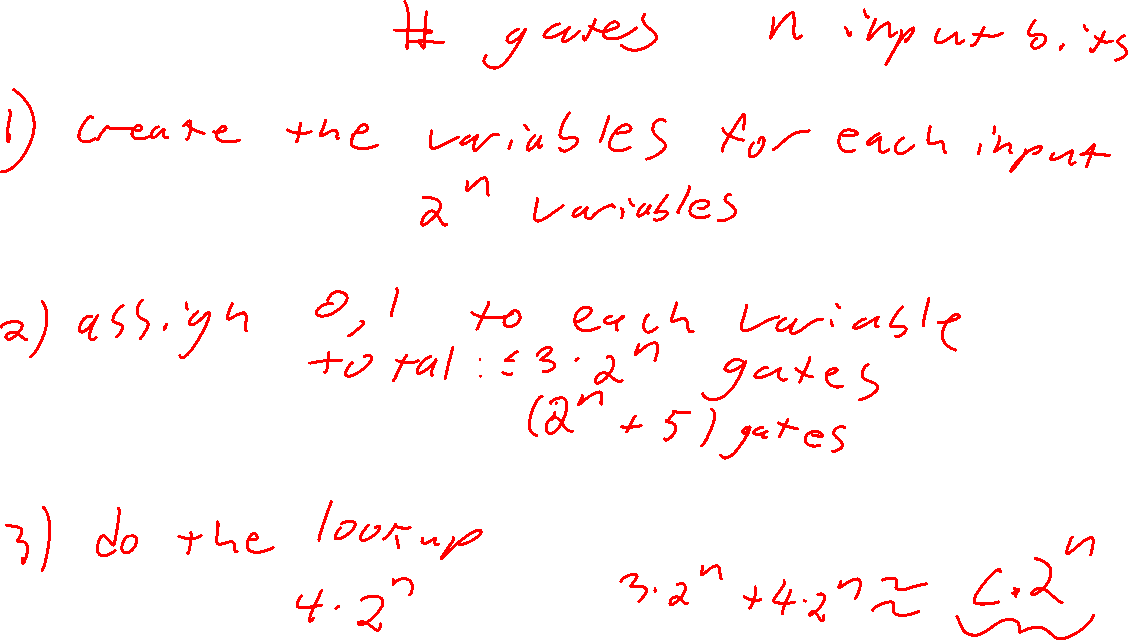 # gates n input bits
1) create the variables for each input
2^n variables
2) assign 0,1 to each variable
total: ≤ 3·2^n gates
(2^n + 5) gates
3) do the lookup
4·2^n 3·2^n + 4·2^n ≈ c·2^n